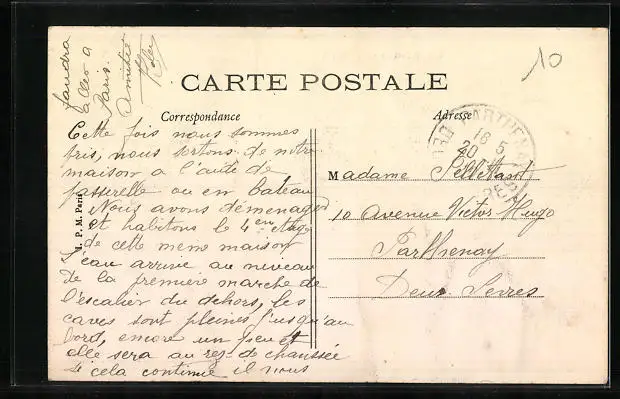 CARTE POSTALE
Correspondance
Adresse
Cette fois nous sommes
pris, nous sortons de notre
maison a l'aide de
passerelle ou en bateau
Nous avons démenagé
et habitons le 4em etage
de cette meme maison
l'eau arrive au niveau
de la première marche de
l'escalier du dehors, les
caves sont pleines jusqu'au
bord, encore un peu et
elle sera au rez de chaussée
Si cela continue il nous
faudra
aller a
Paris.
Amitié
Madame
10 Avenue Victor Hugo
Parthenay
Deux-Sevres
PARTHENAY
18 5
20
I. P. M. Paris
10